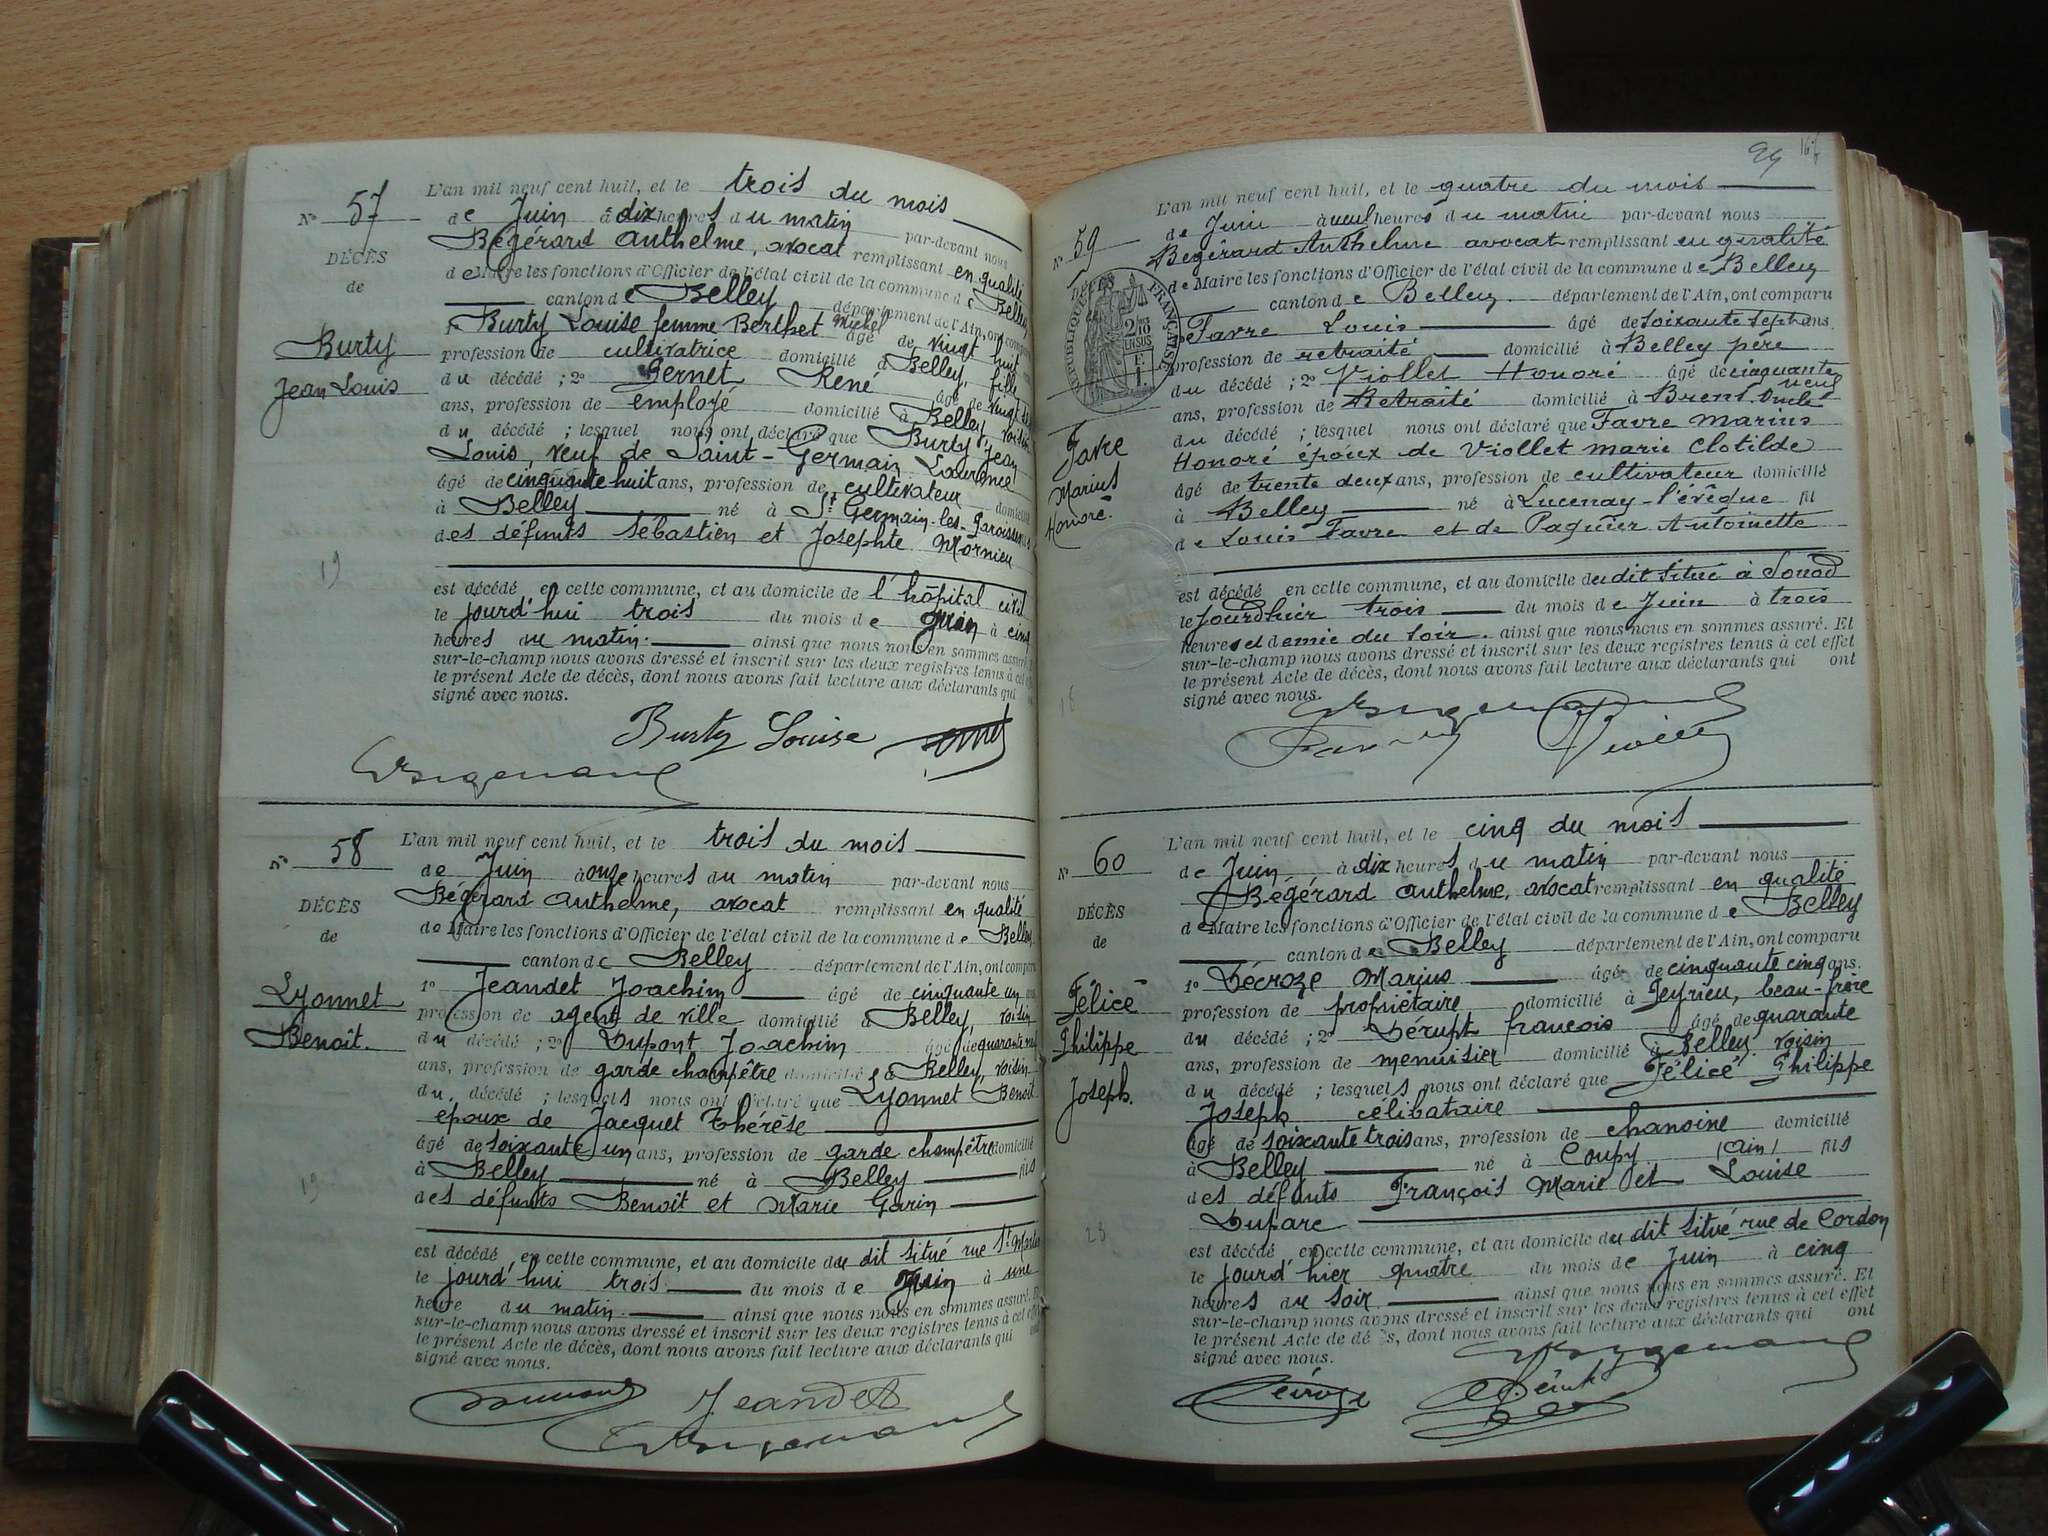 57
N°
DÉCÈS
de
Burty
Jean Louis
19
L'an mil neuf cent huit, et le trois du mois
de Juin à dix heures du matin par-devant nous
Bégérard Anthelme, avocat remplissant en qualité
de Maire les fonctions d'Officier de l'état civil de la commune de Belley
canton de Belley département de l'Ain, ont
Burty Louise femme Berthet Michel âgé de vingt huit
profession de cultivatrice domicilié à Belley, fille
du décédé ; 2° Bernet René âgé de vingt
ans, profession de employé domicilié à Belley, voisin
du décédé ; lesquel nous ont déclaré que Burty, Jean
Louis, veuf de Saint-Germain Laurence
âgé de cinquante huit ans, profession de cultivateur domicilié
à Belley né à St Germain-les-Paroisses
des défunts Sébastien et Josephte Mornieu
est décédé en cette commune, et au domicile de l'hôpital civil
le jourd'hui trois du mois de Juin à cinq
heures du matin. ainsi que nous nous en sommes assuré.
sur-le-champ nous avons dressé et inscrit sur les deux registres tenus à cet
le présent Acte de décès, dont nous avons fait lecture aux déclarants qui
signé avec nous.
Burty Louise
58
N°
DÉCÈS
de
Lyonnet
Benoît.
19
L'an mil neuf cent huit, et le trois du mois
de Juin à onze heures du matin par-devant nous
Bégérard Anthelme, avocat remplissant en qualité
de Maire les fonctions d'Officier de l'état civil de la commune de Belley
canton de Belley département de l'Ain, ont comparu
1° Jeandet Joachim âgé de cinquante un
profession de agent de ville domicilié à Belley, voisin
du décédé ; 2° Dupont Joachim âgé de quarante
ans, profession de garde champêtre domicilié à Belley, voisin
du décédé ; lesquels nous ont déclaré que Lyonnet Benoit
époux de Jacquet Thérèse
âgé de soixante un ans, profession de garde champêtre domicilié
à Belley né à Belley fils
des défunts Benoît et Marie Garin
est décédé en cette commune, et au domicile du dit situé rue St Martin
le jourd'hui trois du mois de Juin à une
heure du matin. ainsi que nous nous en sommes assuré.
sur-le-champ nous avons dressé et inscrit sur les deux registres tenus à cet effet
le présent Acte de décès, dont nous avons fait lecture aux déclarants qui
signé avec nous.
Jeandet
99 164
N° 59
DÉCÈS
RÉPUBLIQUE FRANÇAISE
Favre
Marius
Honoré.
18
L'an mil neuf cent huit, et le quatre du mois
de Juin à neuf heures du matin par-devant nous
Bégérard Anthelme avocat remplissant en qualité
de Maire les fonctions d'Officier de l'état civil de la commune de Belley
canton de Belley département de l'Ain, ont comparu
Favre Louis âgé de soixante sept ans
profession de retraité domicilié à Belley père
du décédé ; 2° Viollet Honoré âgé de cinquante neuf
ans, profession de Retraité domicilié à Brens oncle
du décédé ; lesquel nous ont déclaré que Favre Marius
Honoré époux de Viollet Marie Clotilde
âgé de trente deux ans, profession de cultivateur domicilié
à Belley né à Lucenay-l'évêque fil
de Louis Favre et de Paquier Antoinette
est décédé en cette commune, et au domicile du dit situé à Sonod
le jourdhier trois du mois de Juin à trois
heures et demie du soir. ainsi que nous nous en sommes assuré. Et
sur-le-champ nous avons dressé et inscrit sur les deux registres tenus à cet effet
le présent Acte de décès, dont nous avons fait lecture aux déclarants qui ont
signé avec nous.
N° 60
DÉCÈS
de
Félicé
Philippe
Joseph.
23
L'an mil neuf cent huit, et le cinq du mois
de Juin à dix heures du matin par-devant nous
Bégérard Anthelme, avocat remplissant en qualité
de Maire les fonctions d'Officier de l'état civil de la commune de Belley
canton de Belley département de l'Ain, ont comparu
1° Décroze Marius âgé de cinquante cinq ans.
profession de propriétaire domicilié à Peyrieu, beau-frère
du décédé ; 2° Dérupt françois âgé de quarante
ans, profession de menuisier domicilié à Belley voisin
du décédé ; lesquels nous ont déclaré que Félicé Philippe
Joseph célibataire
âgé de soixante trois ans, profession de chanoine domicilié
à Belley né à Coupy (Ain) fils
des défunts François Marie et Louise
Duparc
est décédé en cette commune, et au domicile du dit situé rue de Cordon
le jourd'hier quatre du mois de Juin à cinq
heures du soir. ainsi que nous nous en sommes assuré. Et
sur-le-champ nous avons dressé et inscrit sur les deux registres tenus à cet effet
le présent Acte de décès, dont nous avons fait lecture aux déclarants qui ont
signé avec nous.